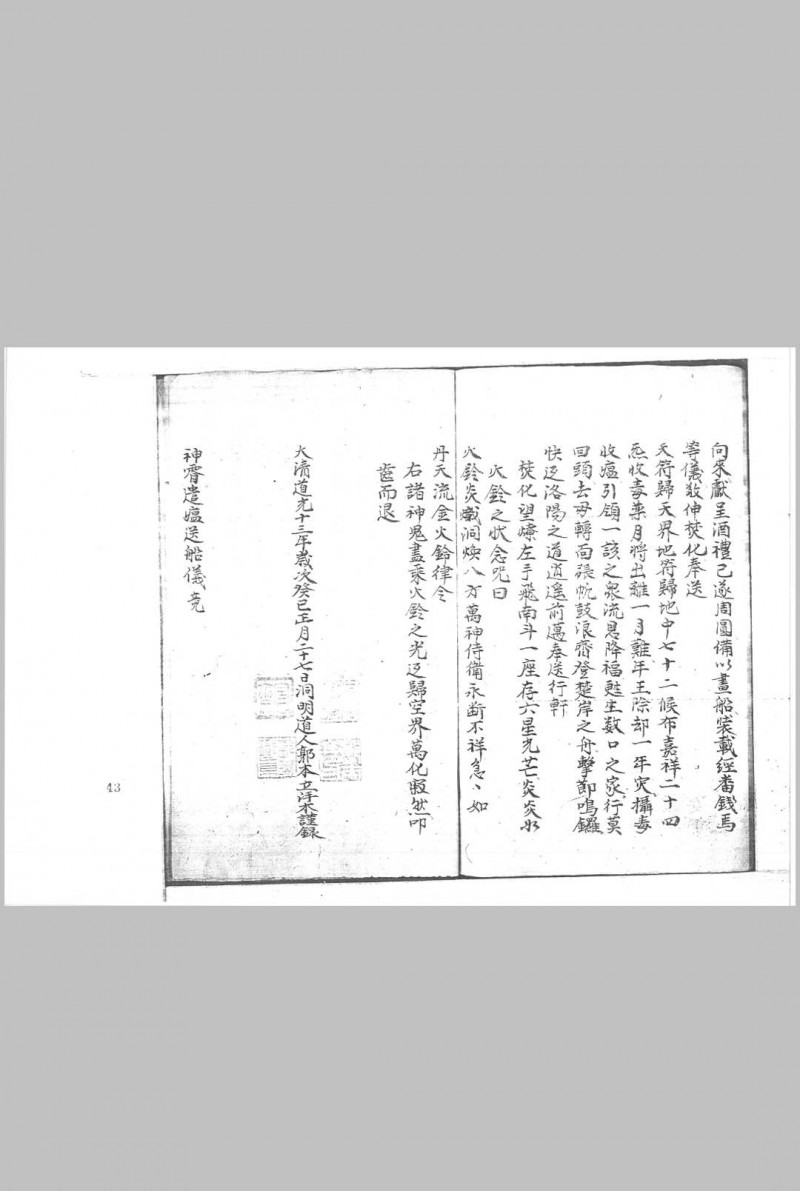 向來獻呈酒禮已遂周圓備以畫船裝載經畨錢馬
等儀敢伸焚化奉送
天符歸天界地符歸地中七十二候布嘉祥二十四
炁收毒藥月將出離一月難年王除却一年灾攝毒
收瘟引領一該之衆流恩降福甦生数口之家行莫
回頭去毋轉面張帆鼓浪齊登楚岸之舟擊節鳴鑼
快返洛陽之道逍遥前邁奉送行軒
焚化望燎左手飛南斗一座存六星光芒炎炎如
火鈴之状念咒曰
火鈴炎熾洞煥八方萬神侍備永断不祥急丶如
丹天流金火鈴律令
右諸神鬼盡乘火鈴之光返歸空界萬化寂然叩
齒而退
大清道光十三年歲次癸巳正月二十七日洞明道人郭本 謹録
神霄遣瘟送船儀 竟
43